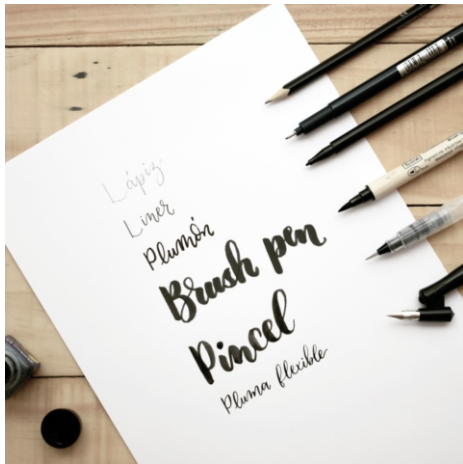 Lápiz
Liner
Plumón
Brush pen
Pincel
Pluma flexible